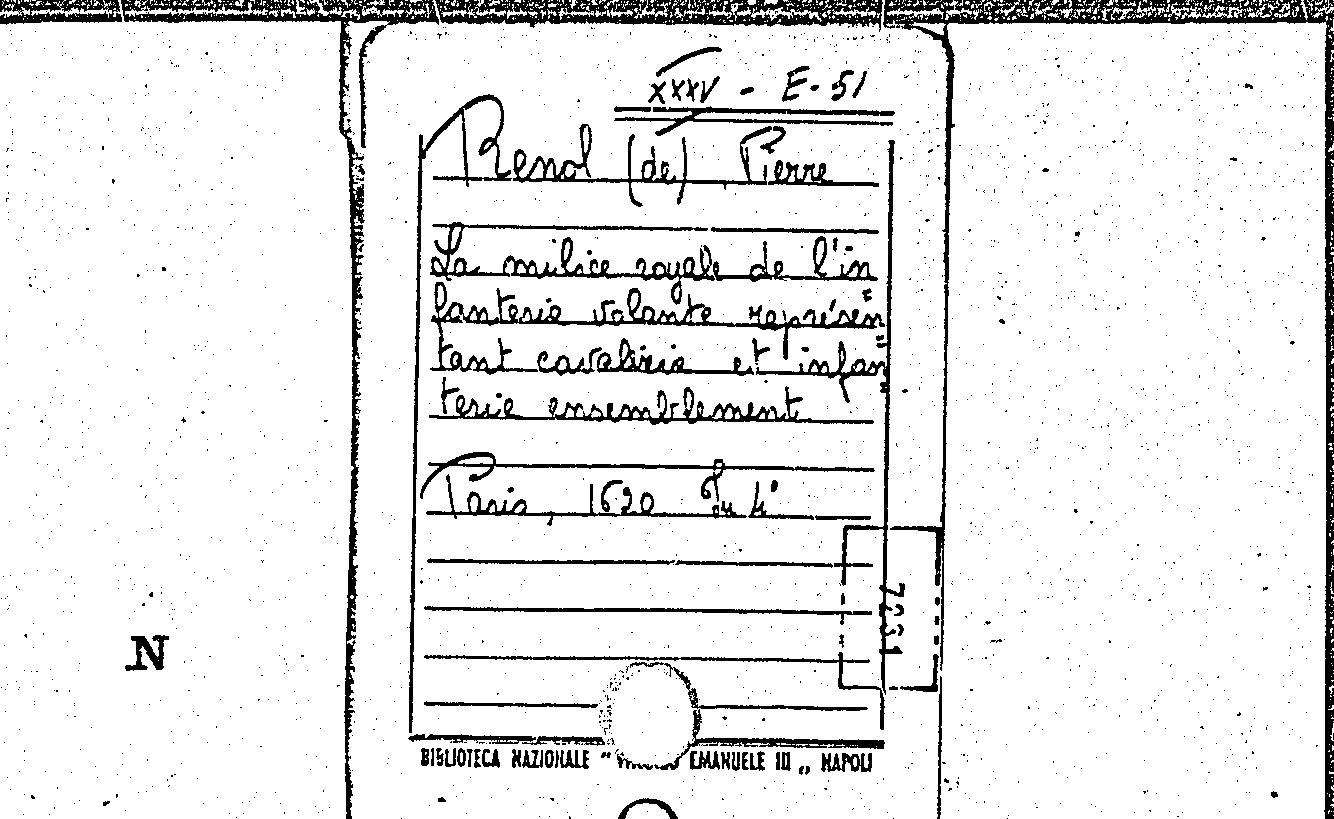 XXXV - E. 51
Renol (de) Pierre
La milice royale de l'in
fanterie volante représen"
tant cavalerie et infan"
terie ensemblement
Paris, 1620 In 4°
7231
N
BIBLIOTECA NAZIONALE " EMANUELE III „ NAPOLI